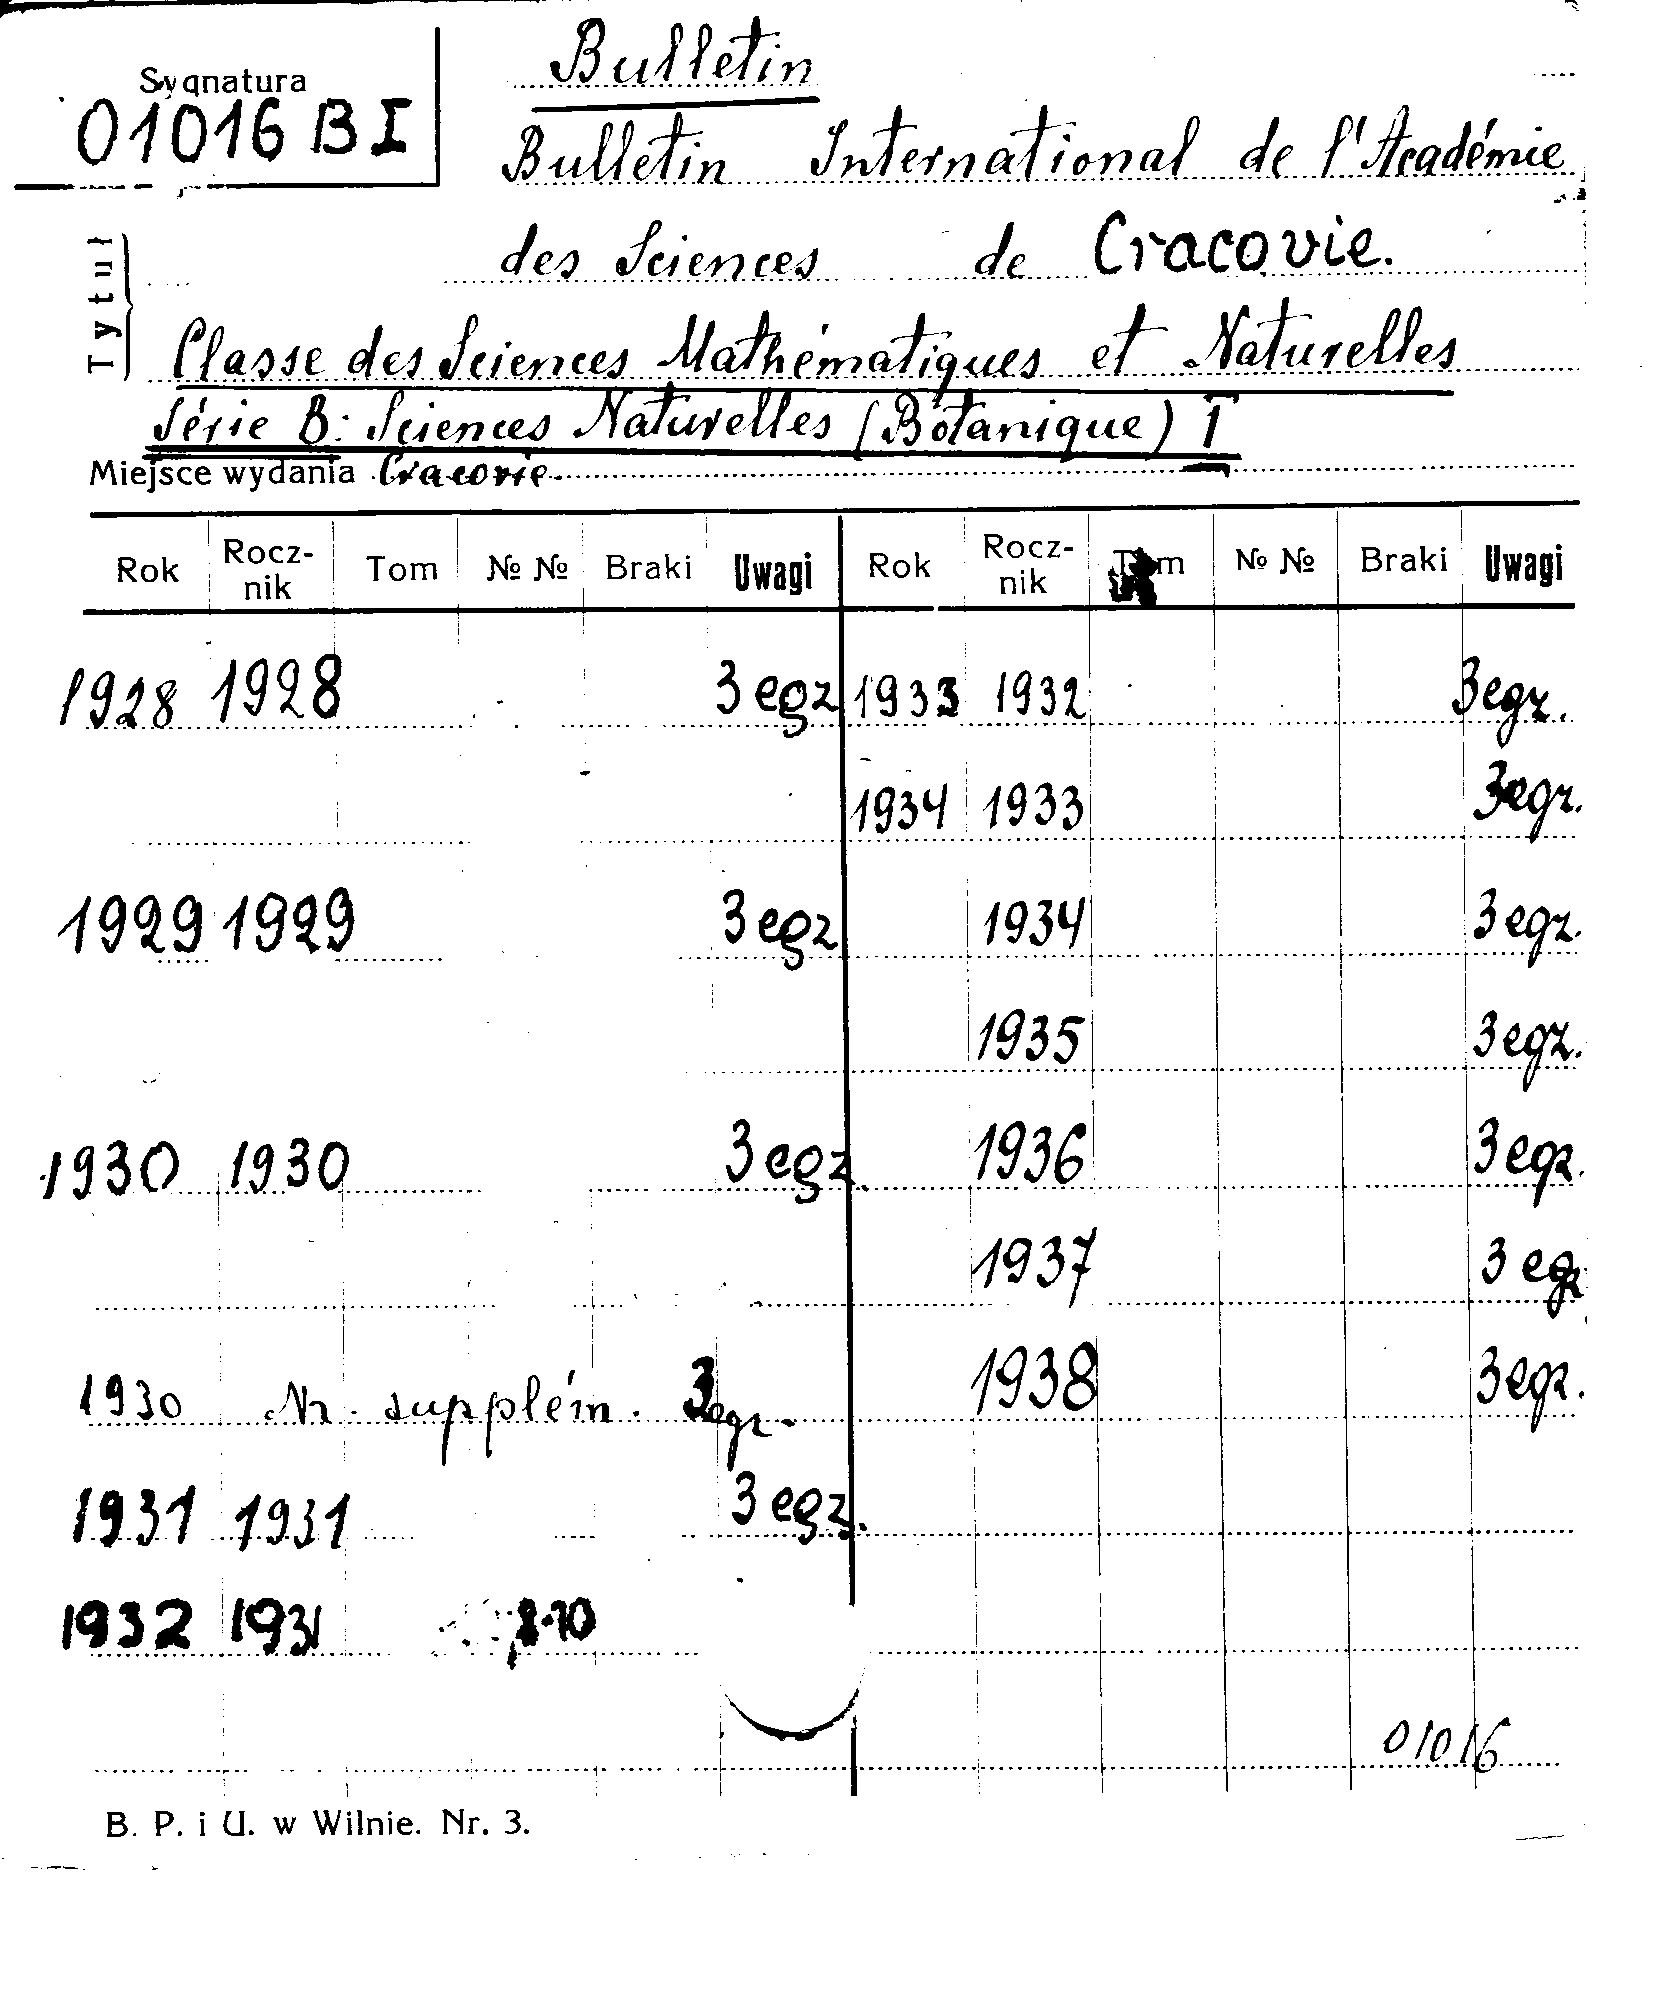 Bulletin
Sygnatura
01016 B I
Bulletin International de l'Académie
des Sciences de Cracovie.
Tytuł
Classe des Sciences Mathématiques et Naturelles
Série B: Sciences Naturelles (Botanique) I
Miejsce wydania Cracovie
Rok Rocz-nik Tom № № Braki Uwagi Rok Rocz-nik Tom № № Braki Uwagi
1928 1928 3 egz 1933 1932 3 egz.
1934 1933 3 egz.
1929 1929 3 egz 1934 3 egz.
1935 3 egz.
1930 1930 3 egz. 1936 3 egz.
1937 3 egz
1930 Nr. supplém. 3 egz. 1938 3 egz.
1931 1931 3 egz.
1932 1931 8-10
01016
B. P. i U. w Wilnie. Nr. 3.